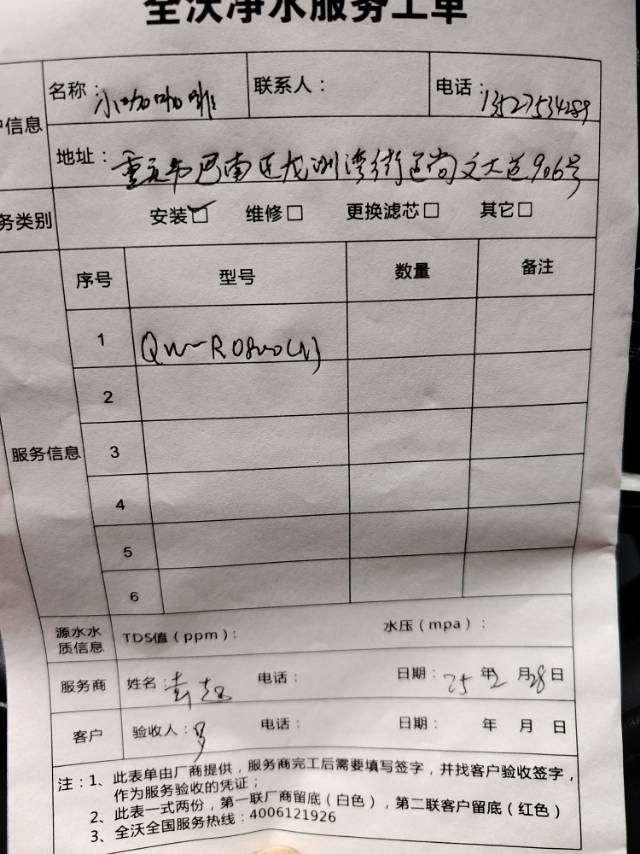 全沃净水服务工单
户信息 名称：小咖咖啡 联系人： 电话：13527534289
地址：重庆市巴南区龙洲湾街道尚文大道906号
务类别 安装☑ 维修□ 更换滤芯□ 其它□
服务信息 序号 型号 数量 备注
1 QW-RO800(N)
2
3
4
5
6
源水水质信息 TDS值（ppm）： 水压（mpa）：
服务商 姓名： 电话： 日期：25年2月28日
客户 验收人：罗 电话： 日期： 年 月 日
注：1、此表单由厂商提供，服务商完工后需要填写签字，并找客户验收签字，
作为服务验收的凭证；
2、此表一式两份，第一联厂商留底（白色），第二联客户留底（红色）
3、全沃全国服务热线：4006121926